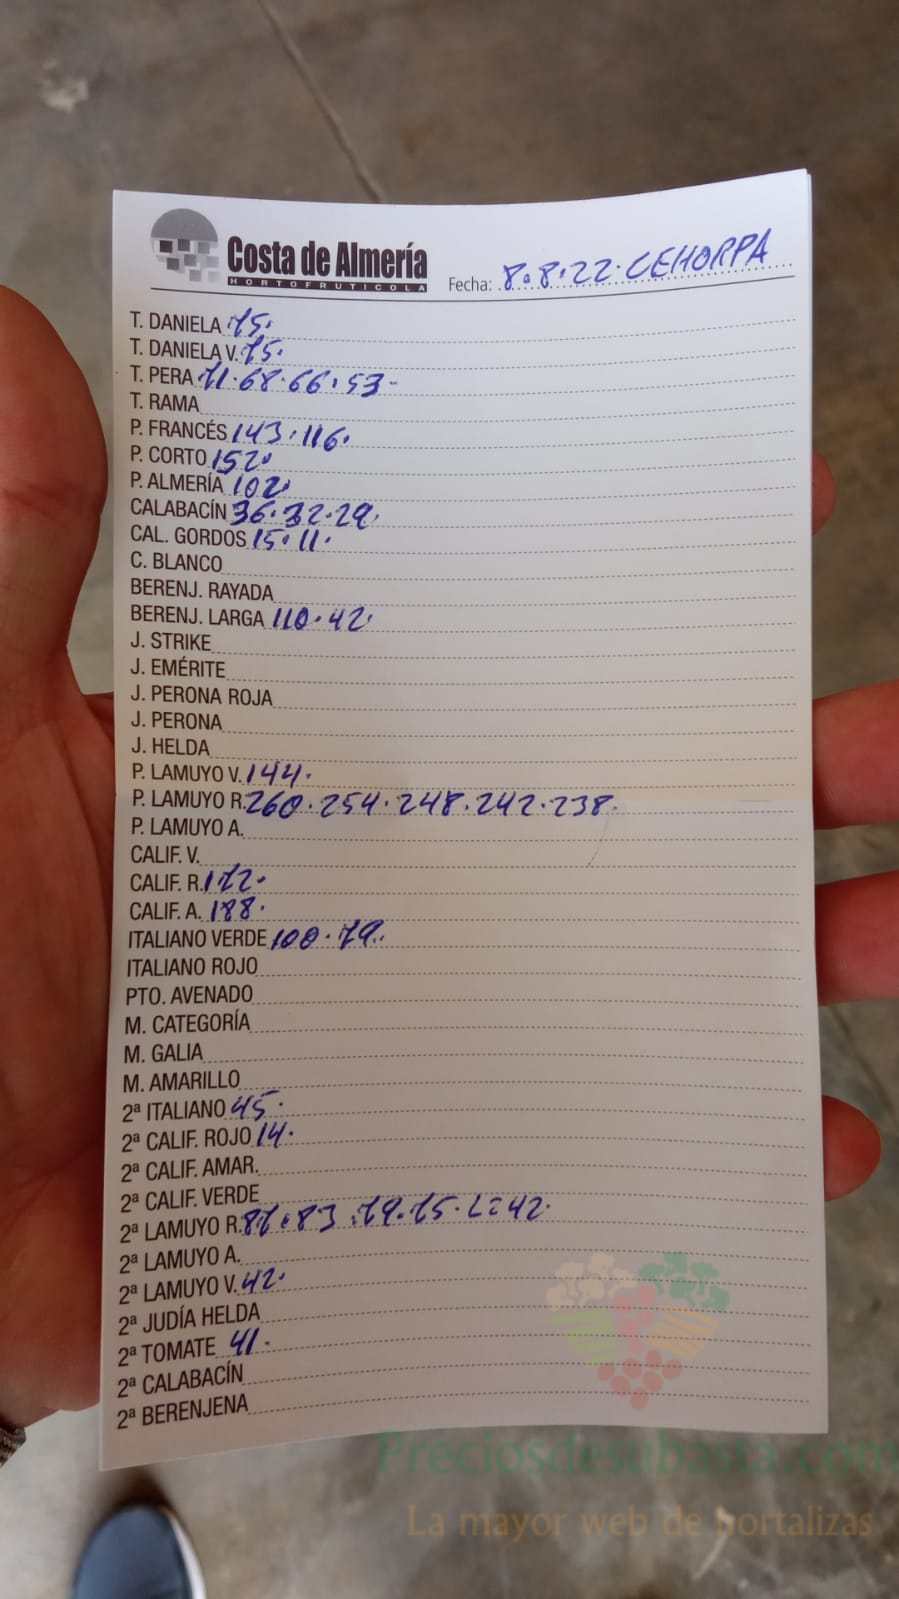 Costa de Almería
HORTOFRUTICOLA
Fecha: 8.8.22. CEHORPA
T. DANELA 75.
T. DANIELA V. 75.
T. PERA 71.68.66.53
T. RAMA
P. FRANCÉS 143.116.
P. CORTO 152.
P. ALMERÍA 102
CALABACÍN 36.32.29.
CAL. GORDOS 15.11.
C. BLANCO
BERENJ. RAYADA
BERENJ. LARGA 110.42.
J. STRIKE
J. EMÉRITE
J. PERONA ROJA
J. PERONA
J. HELDA
P. LAMUYO V. 144.
P. LAMUYO R. 260.254.248.242.238.
P. LAMUYO A.
CALIF. V.
CALIF. R. 172.
CALIF. A. 188.
ITALIANO VERDE 100.79.
ITALIANO ROJO
PTO. AVENADO
M. CATEGORÍA
M. GALIA
M. AMARILLO
2ª ITALIANO 45.
2ª CALIF. ROJO 14.
2ª CALIF. AMAR.
2ª CALIF. VERDE
2ª LAMUYO R. 87.83.79.75. L:42.
2ª LAMUYO A.
2ª LAMUYO V. 42.
2ª JUDÍA HELDA
2ª TOMATE 41.
2ª CALABACÍN
2ª BERENJENA
Preciosdesubasta.com
La mayor web de hortalizas